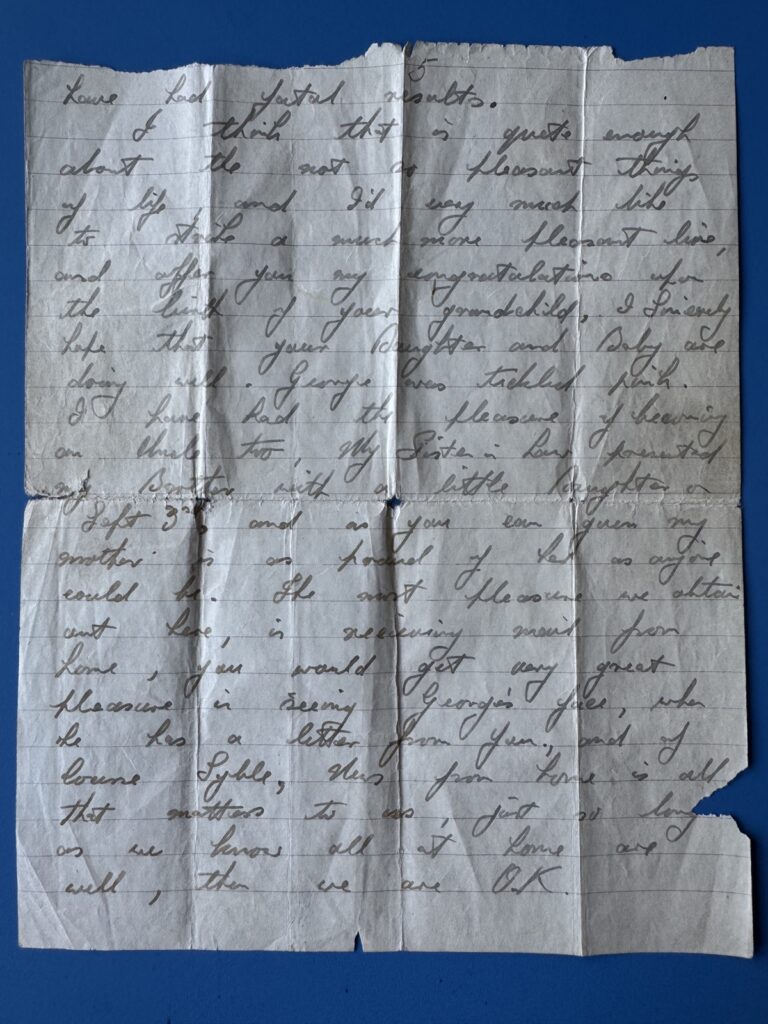 5
have had fatal results.
I think that is quite enough
about the not so pleasant things
of life, and I'd very much like
to strike a much more pleasant line,
and offer you my congratulations upon
the birth of your grandchild, I Sincerely
hope that your Daughter and Baby are
doing well. George was tickled pink.
I have had the pleasure of becoming
an Uncle too, My Sister in Law presented
my Brother with a little Daughter on
Sept 3rd, and as you can guess my
mother is as proud of her as anyone
could be. The most pleasure we obtain
out here, is receiving mail from
home, you would get very great
pleasure in seeing George's face, when
he has a letter from you, and of
course Syble, News from home is all
that matters to us, just so long
as we know all at home are
well, then we are O.K.